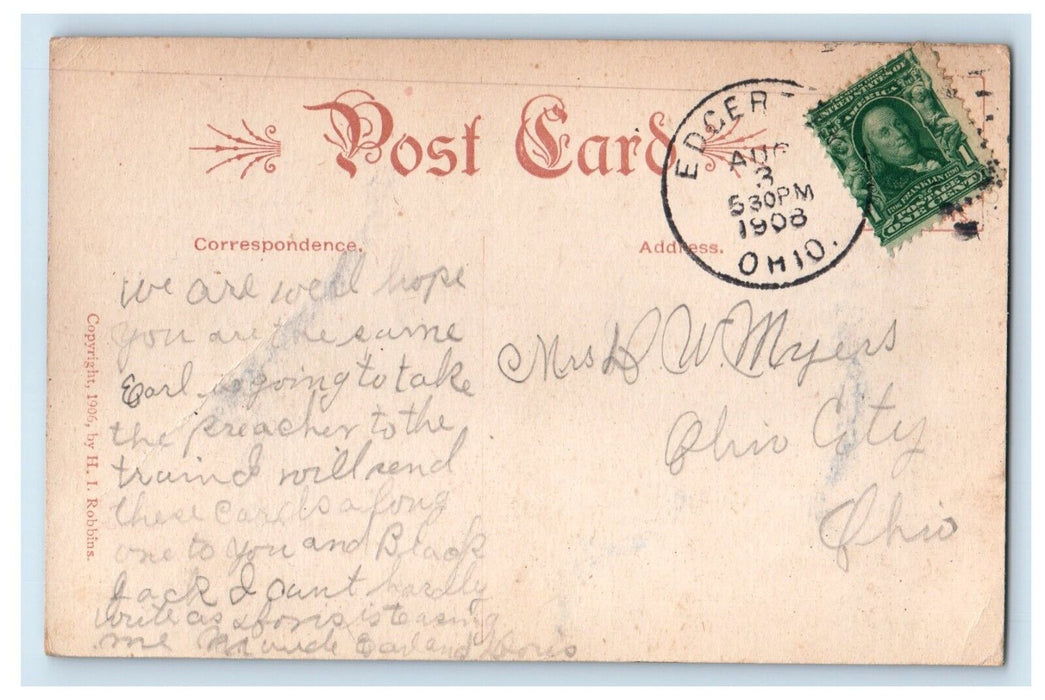 Post Card
Correspondence.
Address.
EDGER
AUG
3
530PM
1908
OHIO.
UNITED STATES OF
AMERICA
1
1
FRANKLIN
POSTAGE
ONE CENT
Copyright, 1906, by H. I. Robbins.
We are well hope
you are the same
Earl is going to take
the preacher to the
train I will send
these cards along
one to you and Black
Jack I cant hardly
write as Doris is teasing
me Maude Earl and Doris
Mrs D W. Myers
Ohio City
Ohio